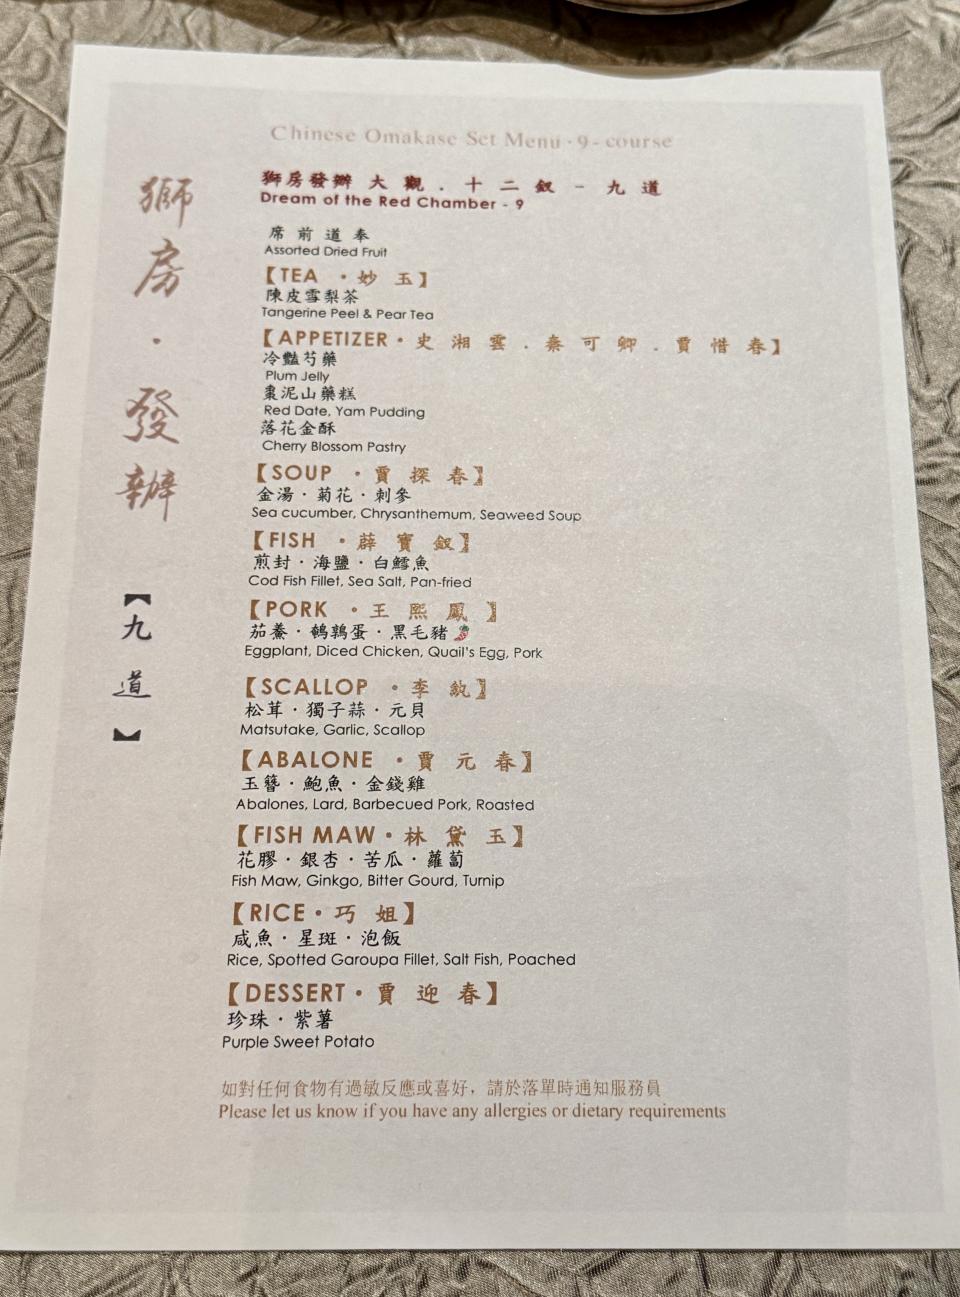 Chinese Omakase Set Menu · 9 - course
獅房發辦 大 觀 . 十 二 釵 - 九 道
Dream of the Red Chamber - 9
獅房·發辦
【九道】
席前道奉
Assorted Dried Fruit
【TEA ·妙 玉】
陳皮雪梨茶
Tangerine Peel & Pear Tea
【APPETIZER·史 湘 雲 . 秦 可 卿 . 賈 惜 春】
冷豔芍藥
Plum Jelly
棗泥山藥糕
Red Date, Yam Pudding
落花金酥
Cherry Blossom Pastry
【SOUP ·賈 探 春】
金湯·菊花·刺參
Sea cucumber, Chrysanthemum, Seaweed Soup
【FISH ·薛 寶 釵】
煎封·海鹽·白鱈魚
Cod Fish Fillet, Sea Salt, Pan-fried
【PORK ·王 熙 鳳 】
茄鯗·鵪鶉蛋·黑毛豬
Eggplant, Diced Chicken, Quail's Egg, Pork
【SCALLOP ·李 紈】
松茸·獨子蒜·元貝
Matsutake, Garlic, Scallop
【ABALONE ·賈 元 春】
玉簪·鮑魚·金錢雞
Abalones, Lard, Barbecued Pork, Roasted
【FISH MAW·林 黛 玉】
花膠·銀杏·苦瓜·蘿蔔
Fish Maw, Ginkgo, Bitter Gourd, Turnip
【RICE·巧 姐】
咸魚·星斑·泡飯
Rice, Spotted Garoupa Fillet, Salt Fish, Poached
【DESSERT·賈 迎 春】
珍珠·紫薯
Purple Sweet Potato
如對任何食物有過敏反應或喜好，請於落單時通知服務員
Please let us know if you have any allergies or dietary requirements